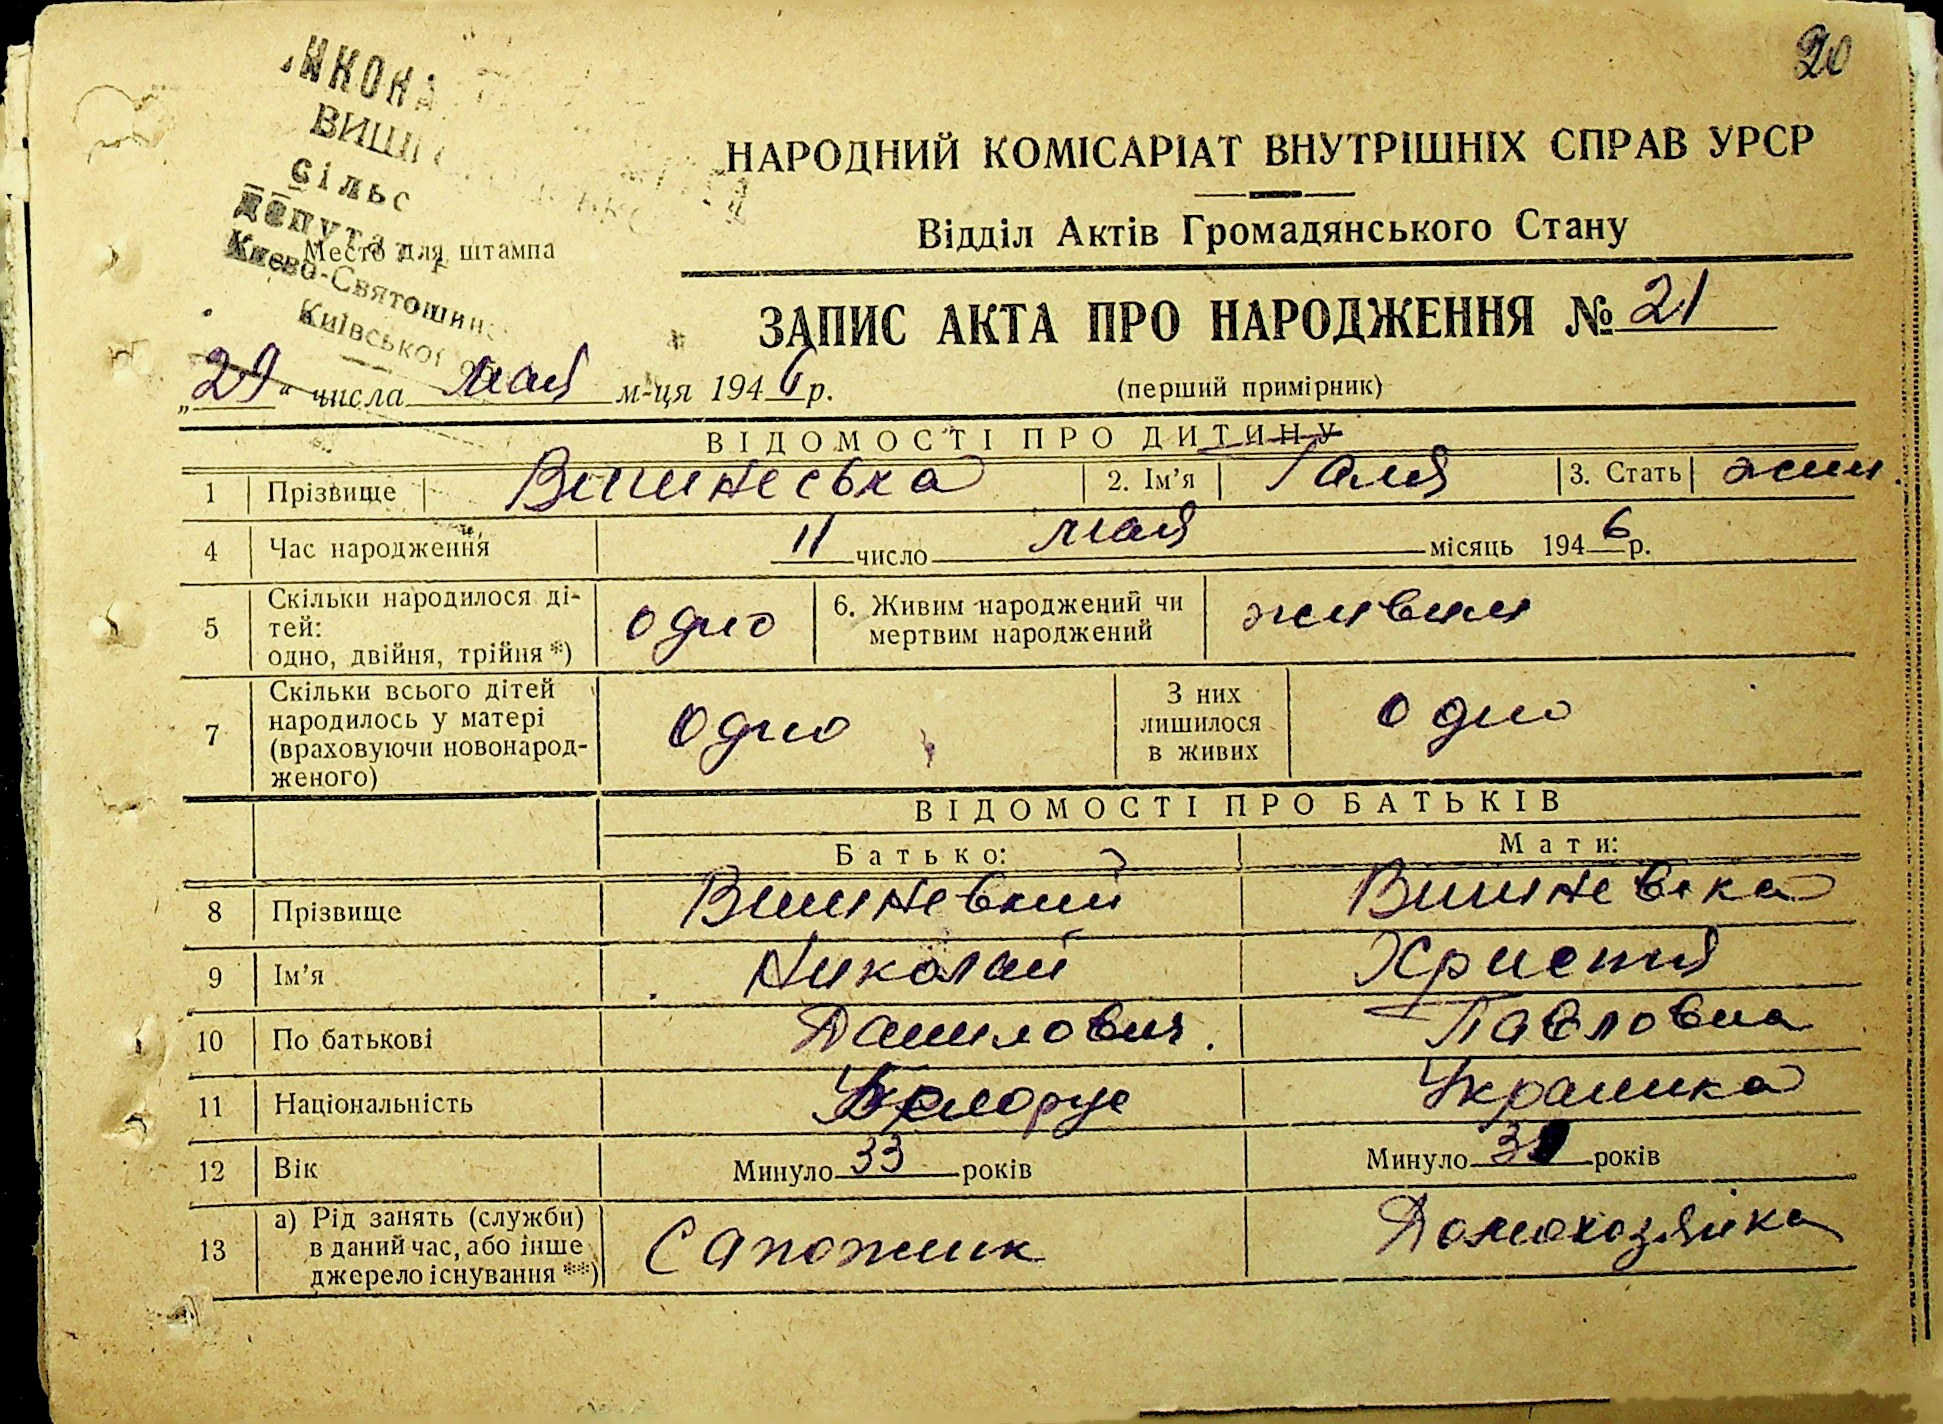 20
ВИКОНА
ВИШ
сільс
депутат
Києво-Святошин
Київської
Место для штампа
НАРОДНИЙ КОМІСАРІАТ ВНУТРІШНІХ СПРАВ УРСР
Відділ Актів Громадянського Стану
ЗАПИС АКТА ПРО НАРОДЖЕННЯ № 21
„29“ числа мая м-ця 1946 р. (перший примірник)
ВІДОМОСТІ ПРО ДИТИНУ
1 Прізвище Вишнеська 2. Ім’я Галя 3. Стать жин.
4 Час народження 11 число мая місяць 1946 р.
5 Скільки народилося ді-
тей:
одно, двійня, трійня *) одно 6. Живим народжений чи
мертвим народжений живим
7 Скільки всього дітей
народилось у матері
(враховуючи новонарод-
женого) одно З них
лишилося
в живих одно
ВІДОМОСТІ ПРО БАТЬКІВ
Батько: Мати:
8 Прізвище Вишневкий Вишневска
9 Ім’я Николай Христя
10 По батькові Данилович. Павловна
11 Національність Білорус Украинка
12 Вік Минуло 33 років Минуло років
13 а) Рід занять (служби)
в даний час, або інше
джерело існування **) Сапожник Домохозяйка